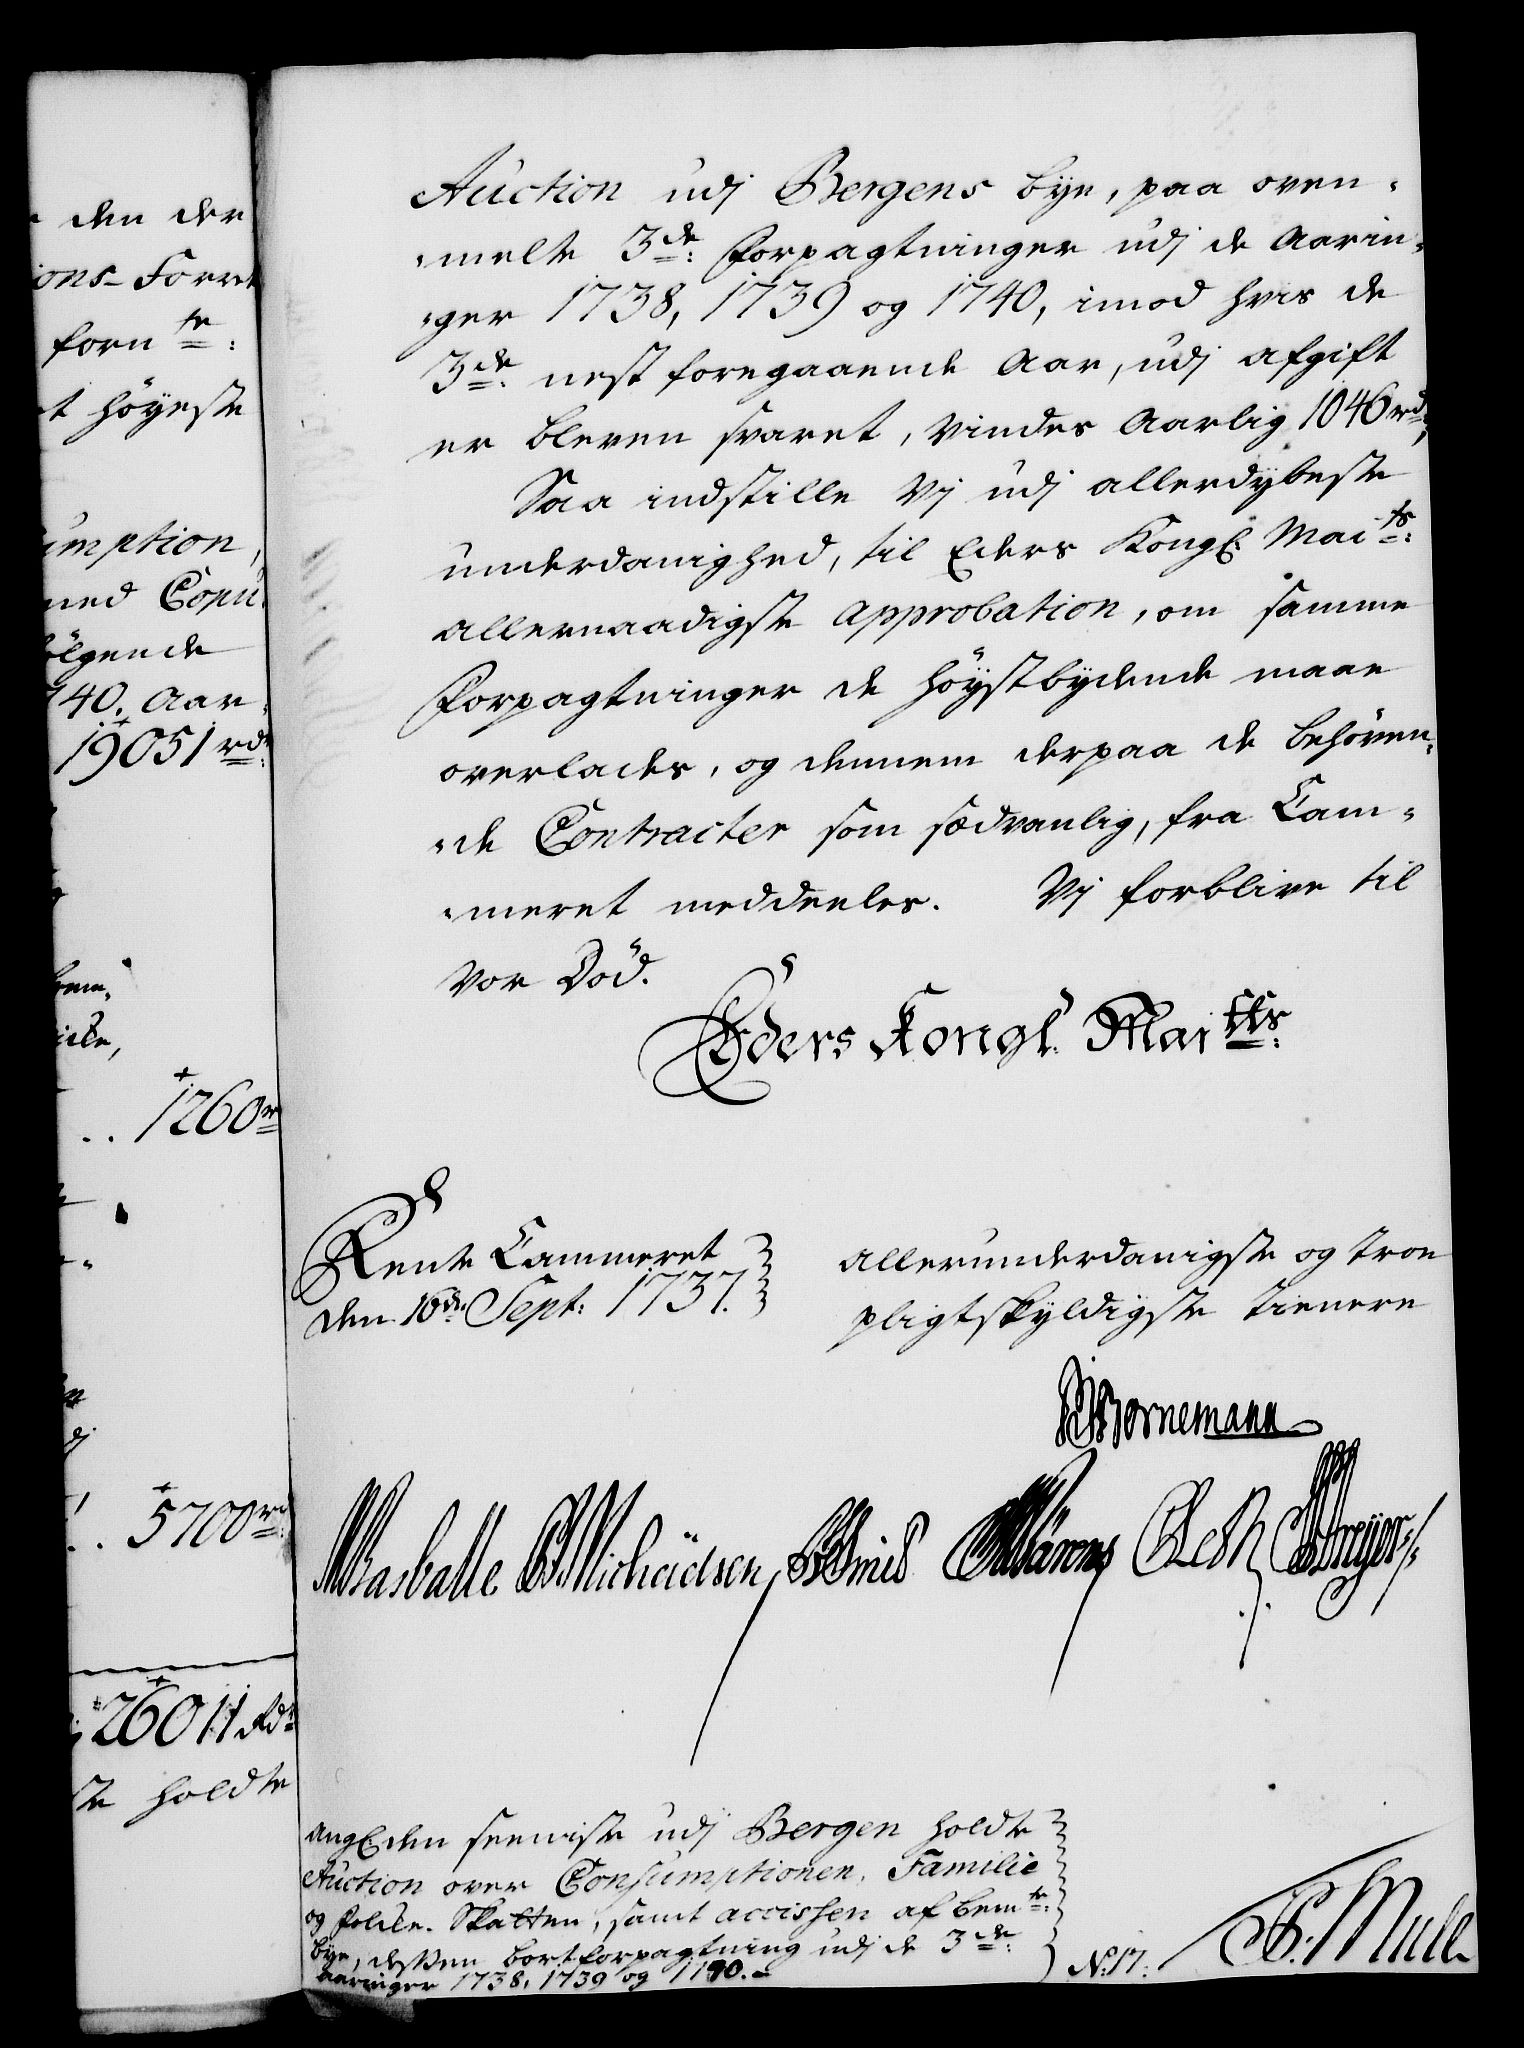 den der
ions-Forret
forn te:
t höyeste
umption,
med Copu
ölgende
740. Aar
19051 rdr
1260 r
5700 rd
26011 Rdr
ste holdte
Auction udj Bergens bye, paa oven-
melte 3de: Forpagtninger udj de Aarin-
ger 1738, 1739 og 1740, imod hvis de
3de: nest foregaaende Aar, udj afgift
er bleven svaret, vindes Aarlig 1046 rdr,
Saa indstille Vj udj allerdybeste
underdanighed, til Eders Kongl: Maits:
allernaadigste approbation, om samme
Forpagtninger de höystbydende maae
overlades, og dennem derpaa de behöven-
de Contracter som sædvanlig, fra Cam-
meret meddeeles. Vj forblive til
vor Död.
Eders Kongl. Maitts:
Rente Cammeret
den 16de Sept: 1737.
allerunderdanigste og troe
pligtskyldigste tienere
Bornemann
Basballe Michaelsen
angl: den seeniste udj Bergen holdte
Auction over Consumptionen, Familie
og Folke-Skatten, samt accissen af bemte:
bye, desssen bortforpagtning udj de 3de:
aaringer 1738, 1739 og 1140.-
No: 17:
Mule